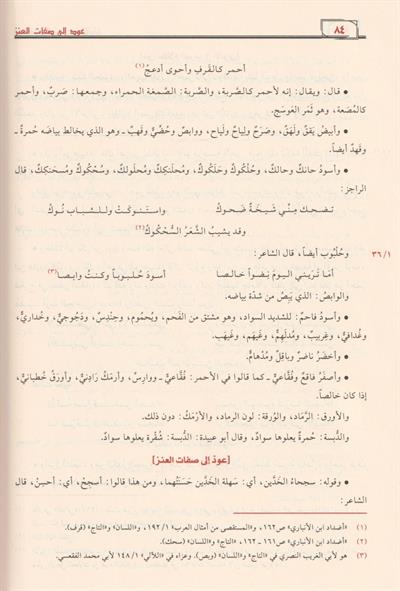 ٨٤
عود إلى صفات العنز
أحمر كالقَرفِ وأحوى أدعجُ(١)
• قال: ويقال: إنه لأحمر كالصَّربة، والصَّربة: الصَّمغة الحمراء، وجمعها: صَربٌ، وأحمر
كالمُصَعة، وهو ثَمَر العَوسَج.
• وأبيضُ يَقَقٌ ولَهَقٌ، وصَرَحٌ ولِياح ولَياح، ووابصٌ وحُضّيٌّ وقَهبٌ ـ وهو الذي يخالط بياضه حُمرةٌ ـ
وقَهدٌ أيضاً.
• وأسودُ حانكٌ وحالكٌ، وحُلْكُوكٌ وحَلَكُوكٌ، ومُحلَنكِكٌ ومُحلَولِكٌ، وسُحْكُوكٌ ومُسحَنكِكٌ، قال
الراجز:
تضحك مِنِّي شَيخَةٌ ضَحوكُ واستنوكَتْ وللشباب نُوكُ
وقد يشيبُ الشَّعرُ السُّحْكُوكُ(٢)
٣٦/١
وحُلْبُوب أيضاً، قال الشاعر:
أمَا تَرَيني اليومَ نِضْواً خالصا أسودَ حُلبوباً وكنتُ وابصا(٣)
والوابصُ: الذي يَبِصُ من شدَّة بياضه.
• وأسودُ فاحمٌ: للشديد السواد، وهو مشتق من الفَحم، ويَحْمُوم، وحِنْدِسٌ، ودَجُوجِيٌّ، وخُداريٌّ،
وغُدافيٌّ، وغِربيبٌ، ومُدلَهِمٌّ، وغَيهَم، وغَيهَب.
• وأخضَرُ ناضرٌ وباقِلٌ ومُدْهامٌّ.
• وأصفَرُ فاقعٌ وفُقَّاعيٌّ ـ كما قالوا في الأحمر: فُقَّاعي ـ ووارسٌ، وأرمَكُ رَادِنيٌّ، وأورَقُ خُطبانيٌّ،
إذا كان خالصاً.
والأورق: الرَّماد، والوُرقة: لون الرماد، والأرْمَكُ: دون ذلك.
والدُّبسة: حُمرةٌ يعلوها سوادٌ، وقال أبو عبيدة: الدُّبسة: شُقْرة يعلوها سوادٌ.
[عودٌ إلى صفات العنز]
• وقوله: سجحاءُ الخدَّين، أي: سَهلة الخدَّين حَسَنتُهما، ومن هذا قالوا: أسجِحْ، أي: أحسِنْ، قال
الشاعر:
(١) «أضداد ابن الأنباري» ص١٦٢، و«المستقصى من أمثال العرب» ١٩٢/١، و«اللسان» و«التاج» (قرف).
(٢) «أضداد ابن الأنباري» ص١٦١ ـ ١٦٢، «التاج» و«اللسان» (سحك).
(٣) هو لأبي الغريب النصري في «التاج» و«اللسان» (وبص). وعزاه في «اللآلي» ١٤٨/١ لأبي محمد الفقعسي.